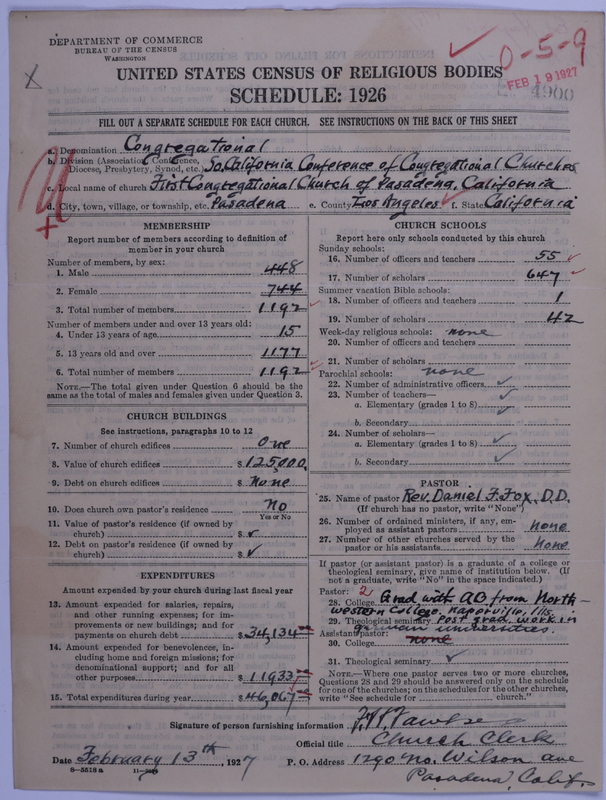 DEPARTMENT OF COMMERCE
BUREAU OF THE CENSUS
WASHINGTON
0-5-9
FEB 19 1927
4900
UNITED STATES CENSUS OF RELIGIOUS BODIES
SCHEDULE: 1926
FILL OUT A SEPARATE SCHEDULE FOR EACH CHURCH. SEE INSTRUCTIONS ON THE BACK OF THIS SHEET
a. Denomination Congregational
b. Division (Association, Conference, Diocese, Presbytery, Synod, etc.) So. California Conference of Congregational Churches
c. Local name of church First Congregational Church of Pasadena, California
d. City, town, village, or township, etc. Pasadena e. County Los Angeles f. State California
MEMBERSHIP
Report number of members according to definition of
member in your church
Number of members, by sex:
1. Male 448
2. Female 744
3. Total number of members 1192
Number of members under and over 13 years old:
4. Under 13 years of age 15
5. 13 years old and over 1177
6. Total number of members 1192
NOTE.—The total given under Question 6 should be
the same as the total of males and females given under Question 3.
CHURCH BUILDINGS
See instructions, paragraphs 10 to 12
7. Number of church edifices One
8. Value of church edifices $ 125,000.
9. Debt on church edifices $ None
10. Does church own pastor's residence No
Yes or No
11. Value of pastor's residence (if owned by
church) $
12. Debt on pastor's residence (if owned by
church) $
EXPENDITURES
Amount expended by your church during last fiscal year
13. Amount expended for salaries, repairs,
and other running expenses; for im-
provements or new buildings; and for
payments on church debt $ 34,134
14. Amount expended for benevolences, in-
cluding home and foreign missions; for
denominational support; and for all
other purposes $ 11933
15. Total expenditures during year $ 46,067
CHURCH SCHOOLS
Report here only schools conducted by this church
Sunday schools:
16. Number of officers and teachers 55
17. Number of scholars 647
Summer vacation Bible schools:
18. Number of officers and teachers 1
19. Number of scholars 42
Week-day religious schools: none
20. Number of officers and teachers
21. Number of scholars
Parochial schools: none
22. Number of administrative officers
23. Number of teachers—
a. Elementary (grades 1 to 8)
b. Secondary
24. Number of scholars—
a. Elementary (grades 1 to 8)
b. Secondary
PASTOR
25. Name of pastor Rev. Daniel F. Fox, D.D.
(If church has no pastor, write "None")
26. Number of ordained ministers, if any, em-
ployed as assistant pastors none
27. Number of other churches served by the
pastor or his assistants None
If pastor (or assistant pastor) is a graduate of a college or
theological seminary, give name of institution below. (If
not a graduate, write "No" in the space indicated.)
Pastor: 2
28. College Grad with AB from North-
western College, Naperville, Ills.
29. Theological seminary Post grad. work in
german universities.
Assistant pastor:
30. College none
31. Theological seminary
NOTE.—Where one pastor serves two or more churches,
Questions 28 and 29 should be answered only on the schedule
for one of the churches; on the schedules for the other churches,
write "See schedule for church."
Signature of person furnishing information
Official title Church Clerk
Date February 13th, 1927 P. O. Address 1290 No. Wilson ave
8—5518 a Pasadena, Calif.